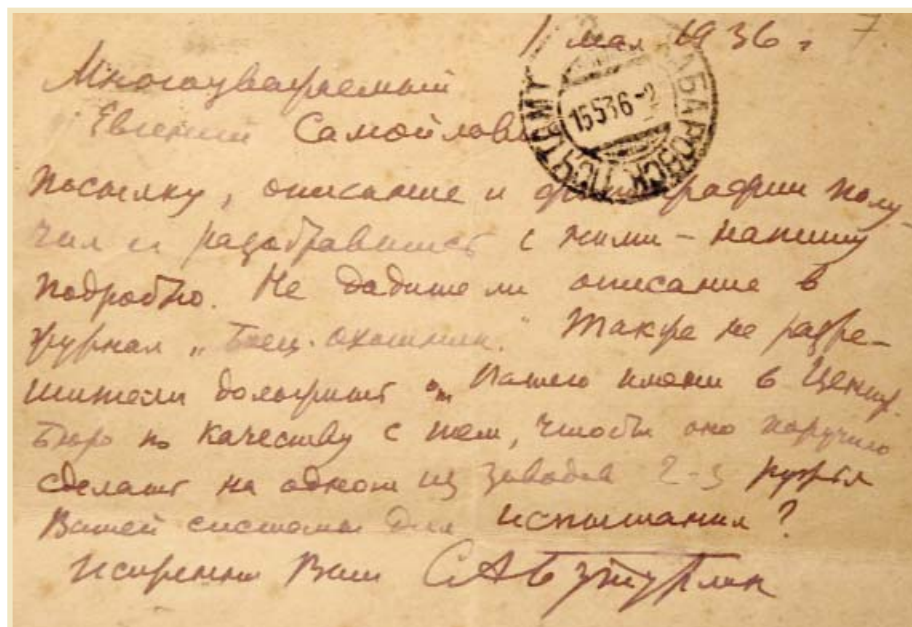 1 мая 1936 г 7
Многоуважаемый
Евгений Самойлович
посылку, описание и фотографии полу-
чил и разобравшись с ними - напишу
подробно. Не дадите ли описание в
журнал „Боец-охотник." Также не разре-
шители доложить от Вашего имени в Центр.
Бюро по качеству с тем, чтобы оно поручило
сделать на одном из заводов 2-3 ружья
Вашей системы для испытания?
Искренне Ваш САБутурлин
ХАБАРОВСК ПОЧТАМТ
15536-2